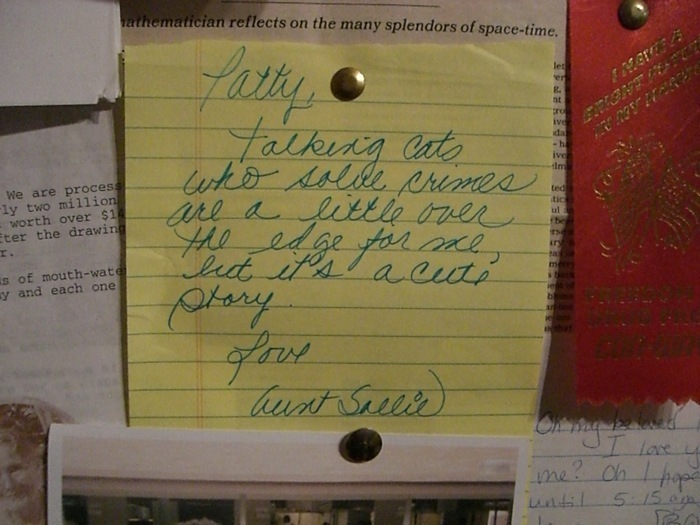 mathematician reflects on the many splendors of space-time.
Patty,
talking cats
who solve crimes
are a little over
the edge for me,
but it's a cute
story.
Love
Aunt Sallie
We are process
two million
worth over $14
fter the drawing
r.
s of mouth-water
y and each one
I HAVE A
BRIGHT
IN MY
Oh my beloved
I love y
me? Oh I hope
until 5:15 am